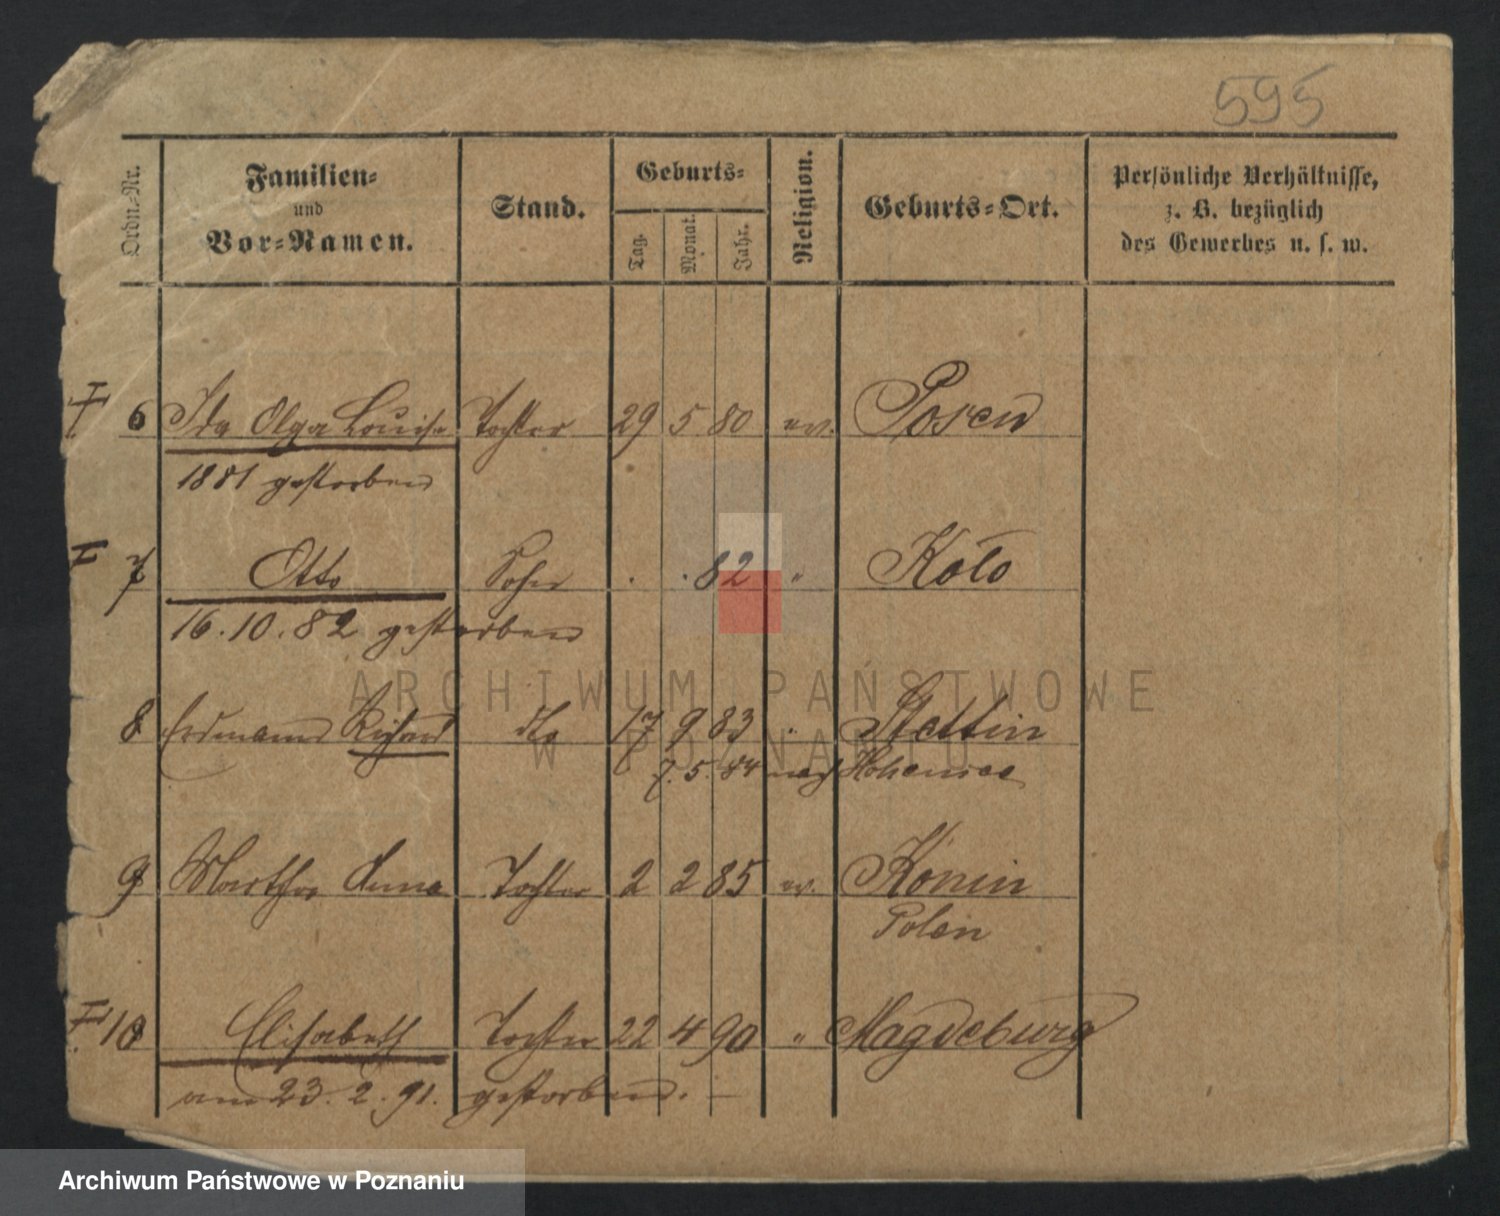 595
Ordn.-Nr. Familien- und Vor-Namen. Stand. Geburts- Tag. Monat. Jahr. Religion. Geburts-Ort. Persönliche Verhältnisse, z. B. bezüglich des Gewerbes u. s. w.
6 Ida Olga Louise Tochter 29 5 80 ev. Posen
1881 gestorben
7 Otto Sohn . . 82 " Koło
16.10.82 gestorben
8 Erdmann Richard dto 17 9 83 " Stettin
7. 5. 84 nach Hohensee
9 Martha Anna Tochter 2 2 85 ev. Konin
Polen
10 Elisabeth Tochter 22 4 90 " Magdeburg
am 23. 2. 91. gestorben.
ARCHIWUM PAŃSTWOWE
W POZNANIU
Archiwum Państwowe w Poznaniu